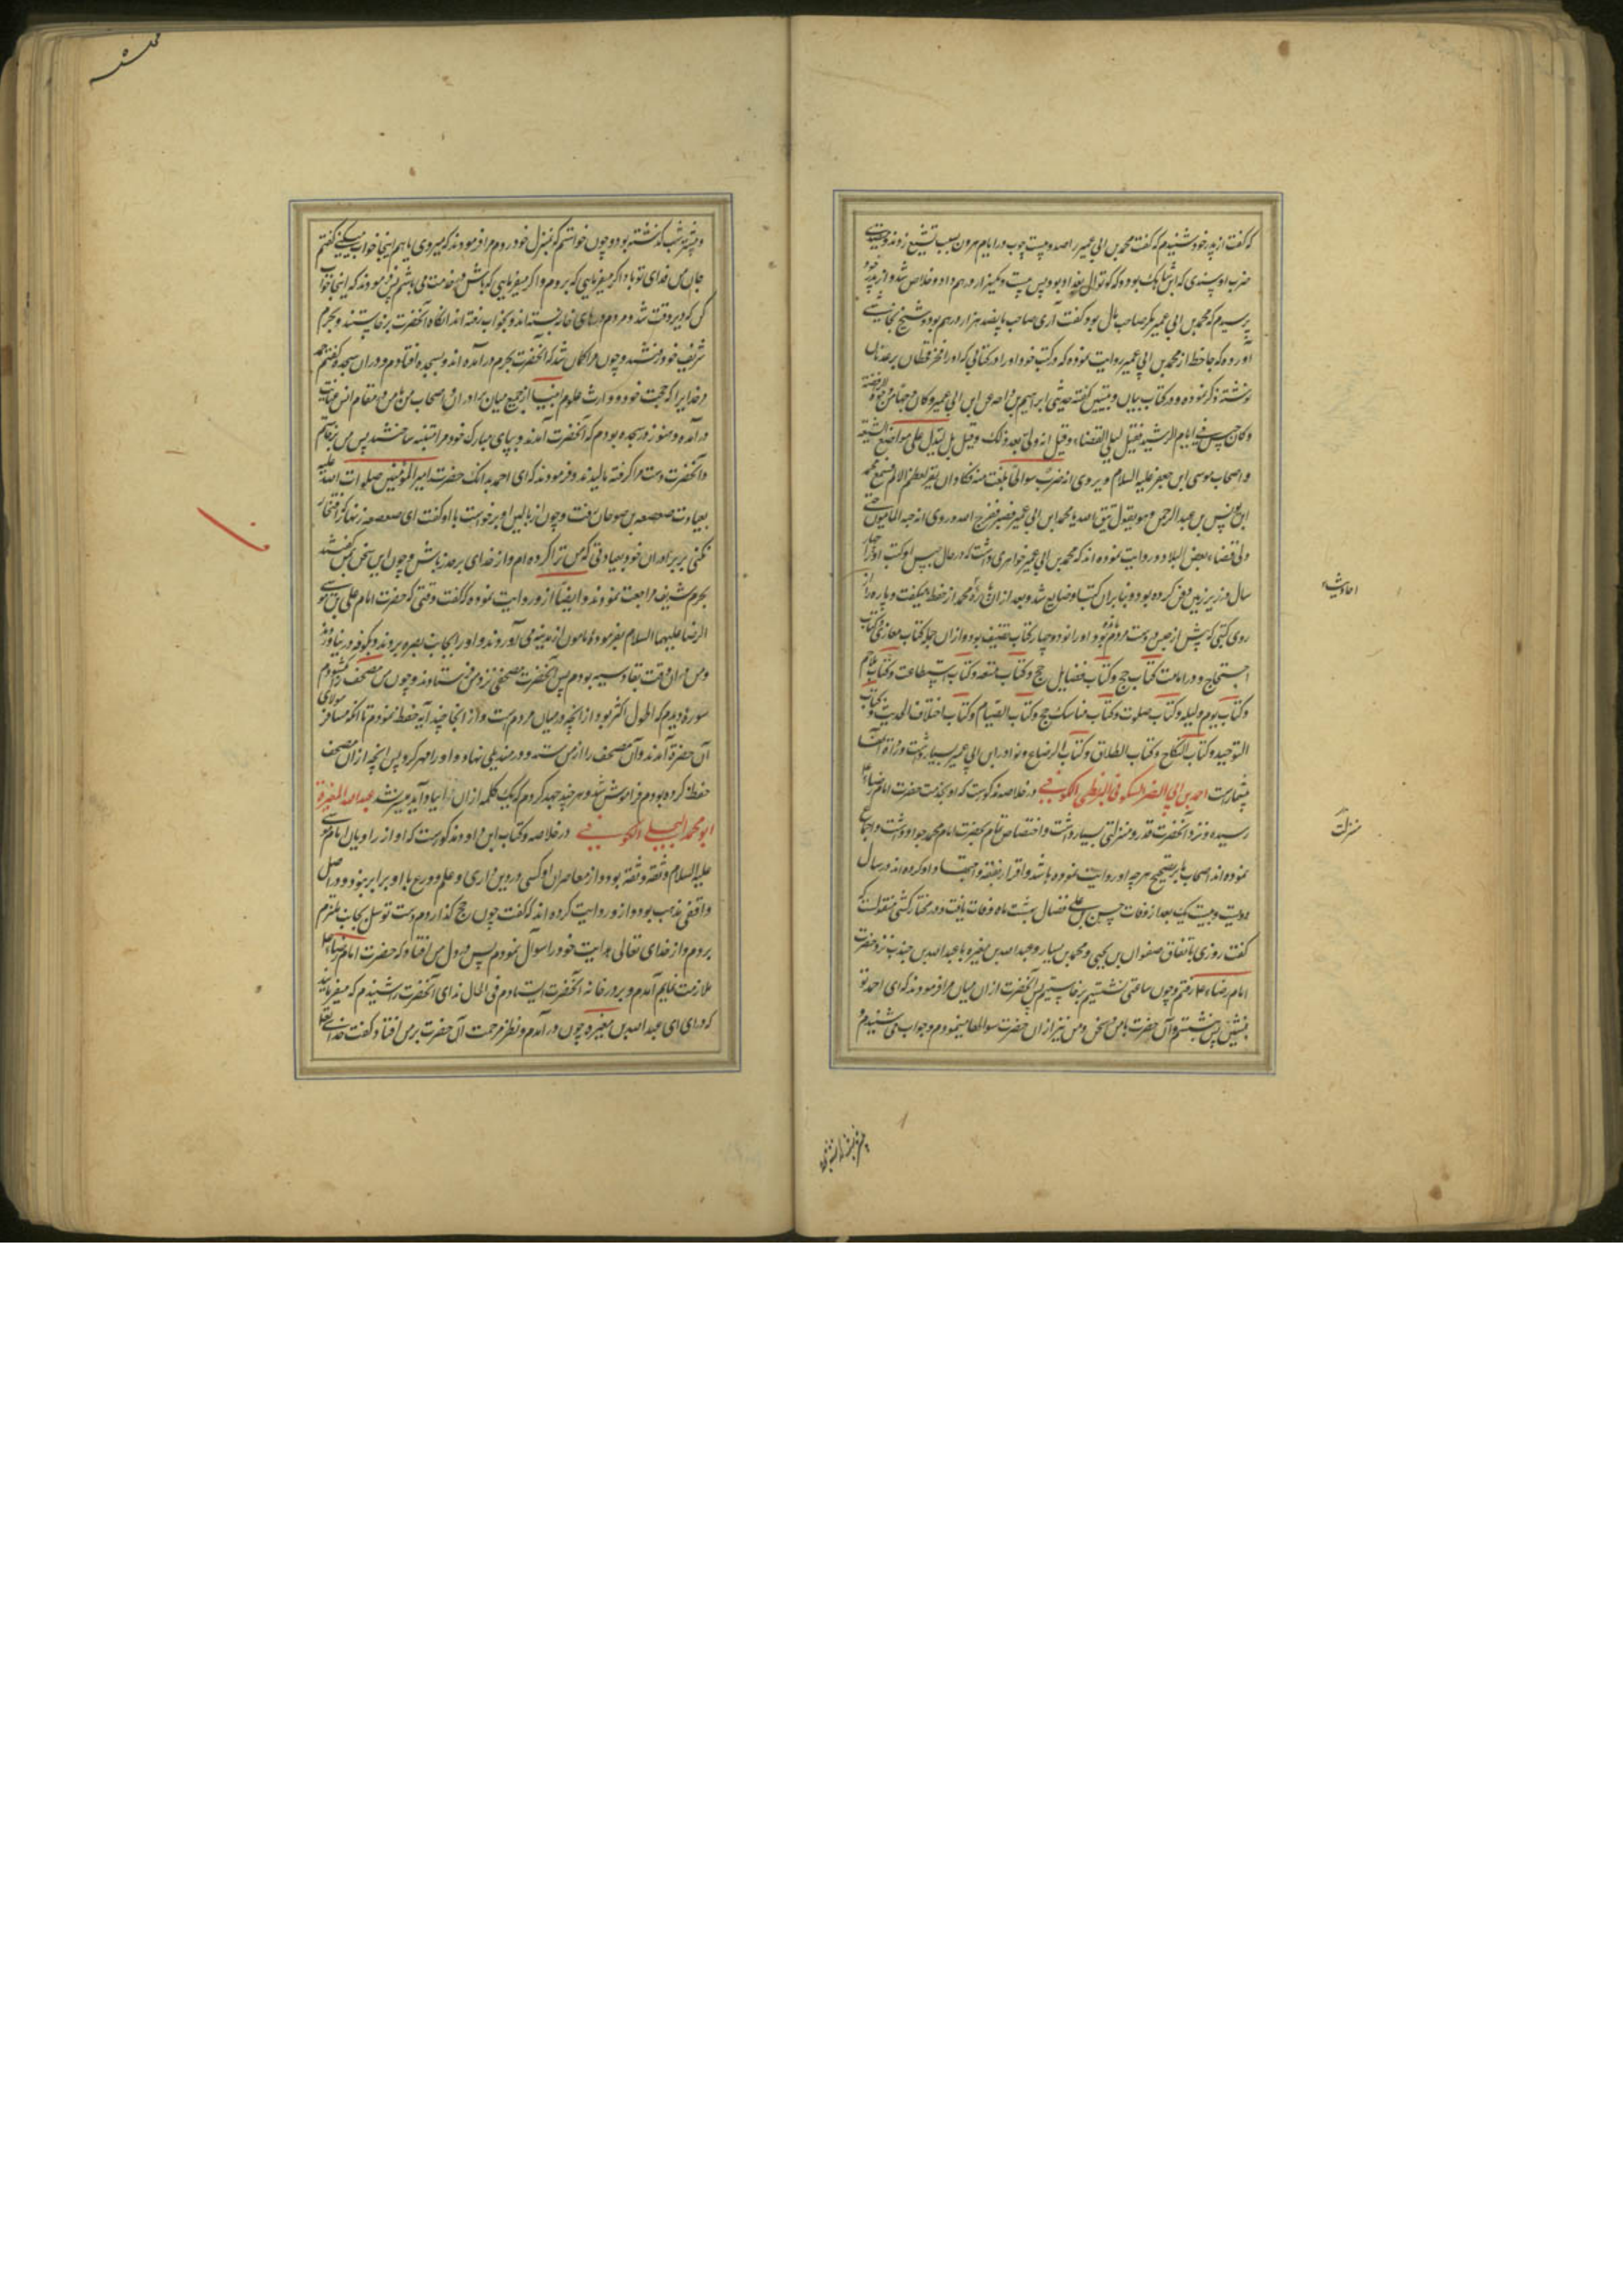 که گفت از پدر خود شنیدم که گفت محمد بن ابی عمیر را صد و بیست چوب در ایام هرون بسبب تشیع زدند و
ضرب او سندی بن شاهک بود که کوتوال بغداد بود پس بیست و یکهزار درهم داد و خلاص شد و از پدر خود
پرسیدم که محمد بن ابی عمیر مگر صاحب مال بود گفت آری صاحب پانصد هزار درهم بود و شیخ نجاشی
آورده که جاحظ از محمد بن ابی عمیر روایت نموده که در کتب خود او را در کتابی که در فخر قحطان بر عدنان
نوشته ذکر نموده و در کتاب بیان و تبیین گفته حدثنی ابراهیم بن داحه عن ابن ابی عمیر و کان وجها من وجوه الرافضة
و کان حبس فی ایام الرشید فقیل لیلی القضاء و قیل انه ولی بعد ذلک و قیل بل لیدل علی مواضع الشیعة
و اصحاب موسی ابن جعفر علیه السلام و یروی انه ضرب سواطا بلغت منه فکاد ان یقر لعظم الالم فسمع محمد
ابن یونس بن عبد الرحمن و هو یقول اتق الله یا محمد ابن ابی عمیر فصبر ففرج الله و روی انه حبسه المامون حتی
ولی قضاء بعض البلاد و روایت نموده اند که محمد بن ابی عمیر خواهری داشت که در حال حبس او کتب او را چهار
سال در زیر زمین دفن کرده بود و بنابران کتب او ضایع شد و بعد از ان محمد از حفظ میگفت و پاره از
روی کتبی که پیش از حبس در دست مردم بود و او را نود و چهار کتاب تصنیف بود و از ان جمله کتاب مغازی و کتاب
احتجاج در امامت کتاب حج و کتاب فضایل حج و کتاب متعه و کتاب استطاعت و کتاب ملاحم
و کتاب یوم و لیله و کتاب صلوت و کتاب مناسک حج و کتاب الصیام و کتاب اختلاف الحدیث و کتاب
التوحید و کتاب النکاح و کتاب الطلاق و کتاب الرضاع و نوادر ابن ابی عمیر بسیار است و رواة آن
بیشمارست احمد بن ابی النصر السکونی البزنطی الکوفی در خلاصه مذکورست که او بخدمت حضرت امام رضا ع
رسیده و نزد آنحضرت قدر و منزلتی بسیار داشت و اختصاص تمام بحضرت امام محمد جواد داشت و اجماع
نموده اند اصحاب ما بر تصحیح هر چه او روایت نموده باشد و اقرار بفقه و اجتهاد او کرده اند در سال
دویست و بیست یک بعد از وفات حسن بن علی فضال بهشت ماه وفات یافت و در مختار کشی منقولست که
گفت روزی باتفاق صفوان بن یحیی و محمد بن سنان و عبد الله بن مغیره یا عبد الله بن جندب نزد حضرت
امام رضا ع رفتم و چون ساعتی نشستیم برخاستیم پس آنحضرت از ان میان مرا فرمودند که ای احمد تو
بنشین پس بنشستم و آن حضرت با من در سخن و من نیز از ان حضرت سوالها مینمودم و جواب می شنیدم و
احادیث
منزلت
و بیشتر شب گذشته بود و چون خواستم که بمنزل خود روم مرا فرمودند که میروی یا هم اینجا خواب میکنی گفتم
جان من فدای تو باد اگر میفرمایی که بروم و اگر میفرمایی که باش در خدمت می باشم پس فرمودند که اینجا خواب
کن که دیر وقت شد و مردم درهای خانه بسته اند و بخواب رفته اند انگاه آنحضرت برخاستند و بحرم
شریف خود رفتند و چون مرا گمان شد که آنحضرت بحرم درآمده اند بسجده افتادم و در ان سجده گفتم حمد
مر خدایرا که حجت خود و وارث علوم انبیا از جمیع میان برادران و اصحاب من با من در مقام انس و عنایت
درآمده و هنوز در سجده بودم که آنحضرت آمدند و بپای مبارک خود مرا متنبه ساختند پس من برخاستم
و آنحضرت دست مرا گرفته مالیدند و فرمودند که ای احمد بدانکه حضرت امیر المؤمنین صلوات الله علیه
بعیادت صعصعه بن صوحان رفت و چون از بالین او برخواست با او گفت ای صعصعه زنهار که افتخار
نکنی بر برادران خود بعیادتی که من ترا کرده ام و از خدای بر حذر باش و چون این سخن بمن گفتند
بحرم شریف مراجعت نمودند و ایضا از و روایت نموده که گفت وقتی که حضرت امام علی بن موسی
الرضا علیهما السلام بفرموده مامون از مدینه می آوردند و او را بجانب بصره بردند و بکوفه در نیاوردند
و من در ان وقت بقادسیه بودم پس آنحضرت مصحفی نزد من فرستادند و چون من مصحف را گشودم
سوره دیدم که اطول و اکثر بود از آنچه در میان مردم است و از انجا چند آیه حفظ نمودم تا آنکه مسافر مولای
آن حضرة آمدند و آن مصحف را از من ستد و در مندیلی نهاد و او را مهر کرد پس آنچه از ان مصحف
حفظ کرده بودم فراموش شد و هر چند جهد کردم که یک کلمه از ان را بیاد آید میسر نشد عبد الله المغیرة
ابو محمد البجلی الکوفی در خلاصه و کتاب ابن داود مذکورست که او از راویان امام موسی
علیه السلام و ثقه و ثقه بود و از معاصران او کسی در دین داری و علم و ورع با او برابر نبود و در اصل
واقفی مذهب بود و از و روایت کرده اند که گفت چون حج گذاردم دست توسل بجانب ملتزم
بردم و از خدای تعالی هدایت خود را سوال نمودم پس در دل من افتاد که حضرت امام رضا ع
ملازمت نمایم آمدم و بر در خانه آنحضرت ایستادم فی الحال ندای آنحضرت را شنیدم که میفرمایند
که درای ای عبد الله بن مغیره چون درآمدم و نظر مرحمت آن حضرت بر من افتاد گفت خدای تعالی